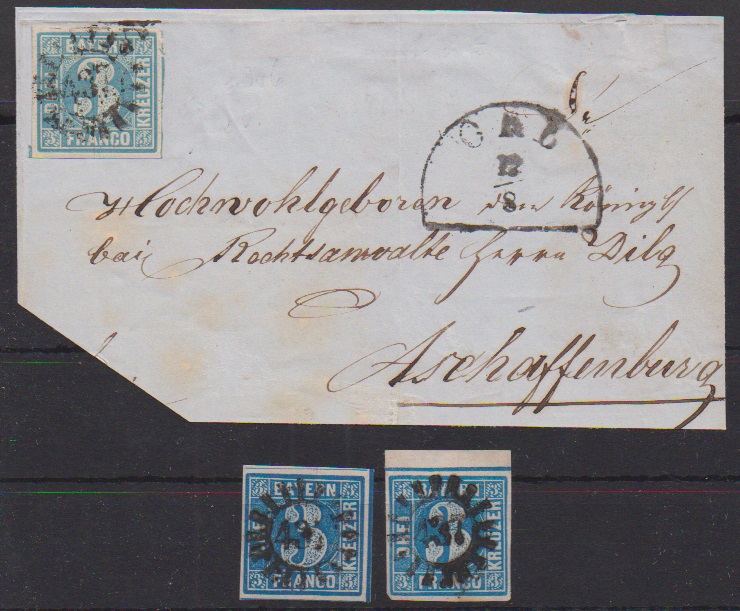 BAYERN
DREI 3 KREUZER
FRANCO
ORB
12
8
Hochwohlgeboren dem Königl
bair Rechtsanwalte Herrn Dilg
Aschaffenburg
BAYERN
DREI 3 KREUZER
43
FRANCO
BAYERN
DREI 3 KREUZER
37
FRANCO